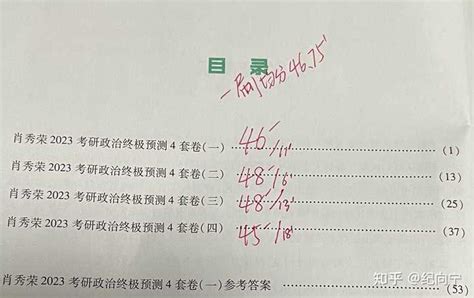 目 录
一刷均分46.75
肖秀荣 2023 考研政治终极预测 4 套卷(一) 46 / 11' (1)
肖秀荣 2023 考研政治终极预测 4 套卷(二) 48 / 6' (13)
肖秀荣 2023 考研政治终极预测 4 套卷(三) 48 / 13' (25)
肖秀荣 2023 考研政治终极预测 4 套卷(四) 45 / 18' (37)
肖秀荣 2023 考研政治终极预测 4 套卷(一)参考答案 (53)
知乎 @纪向宁